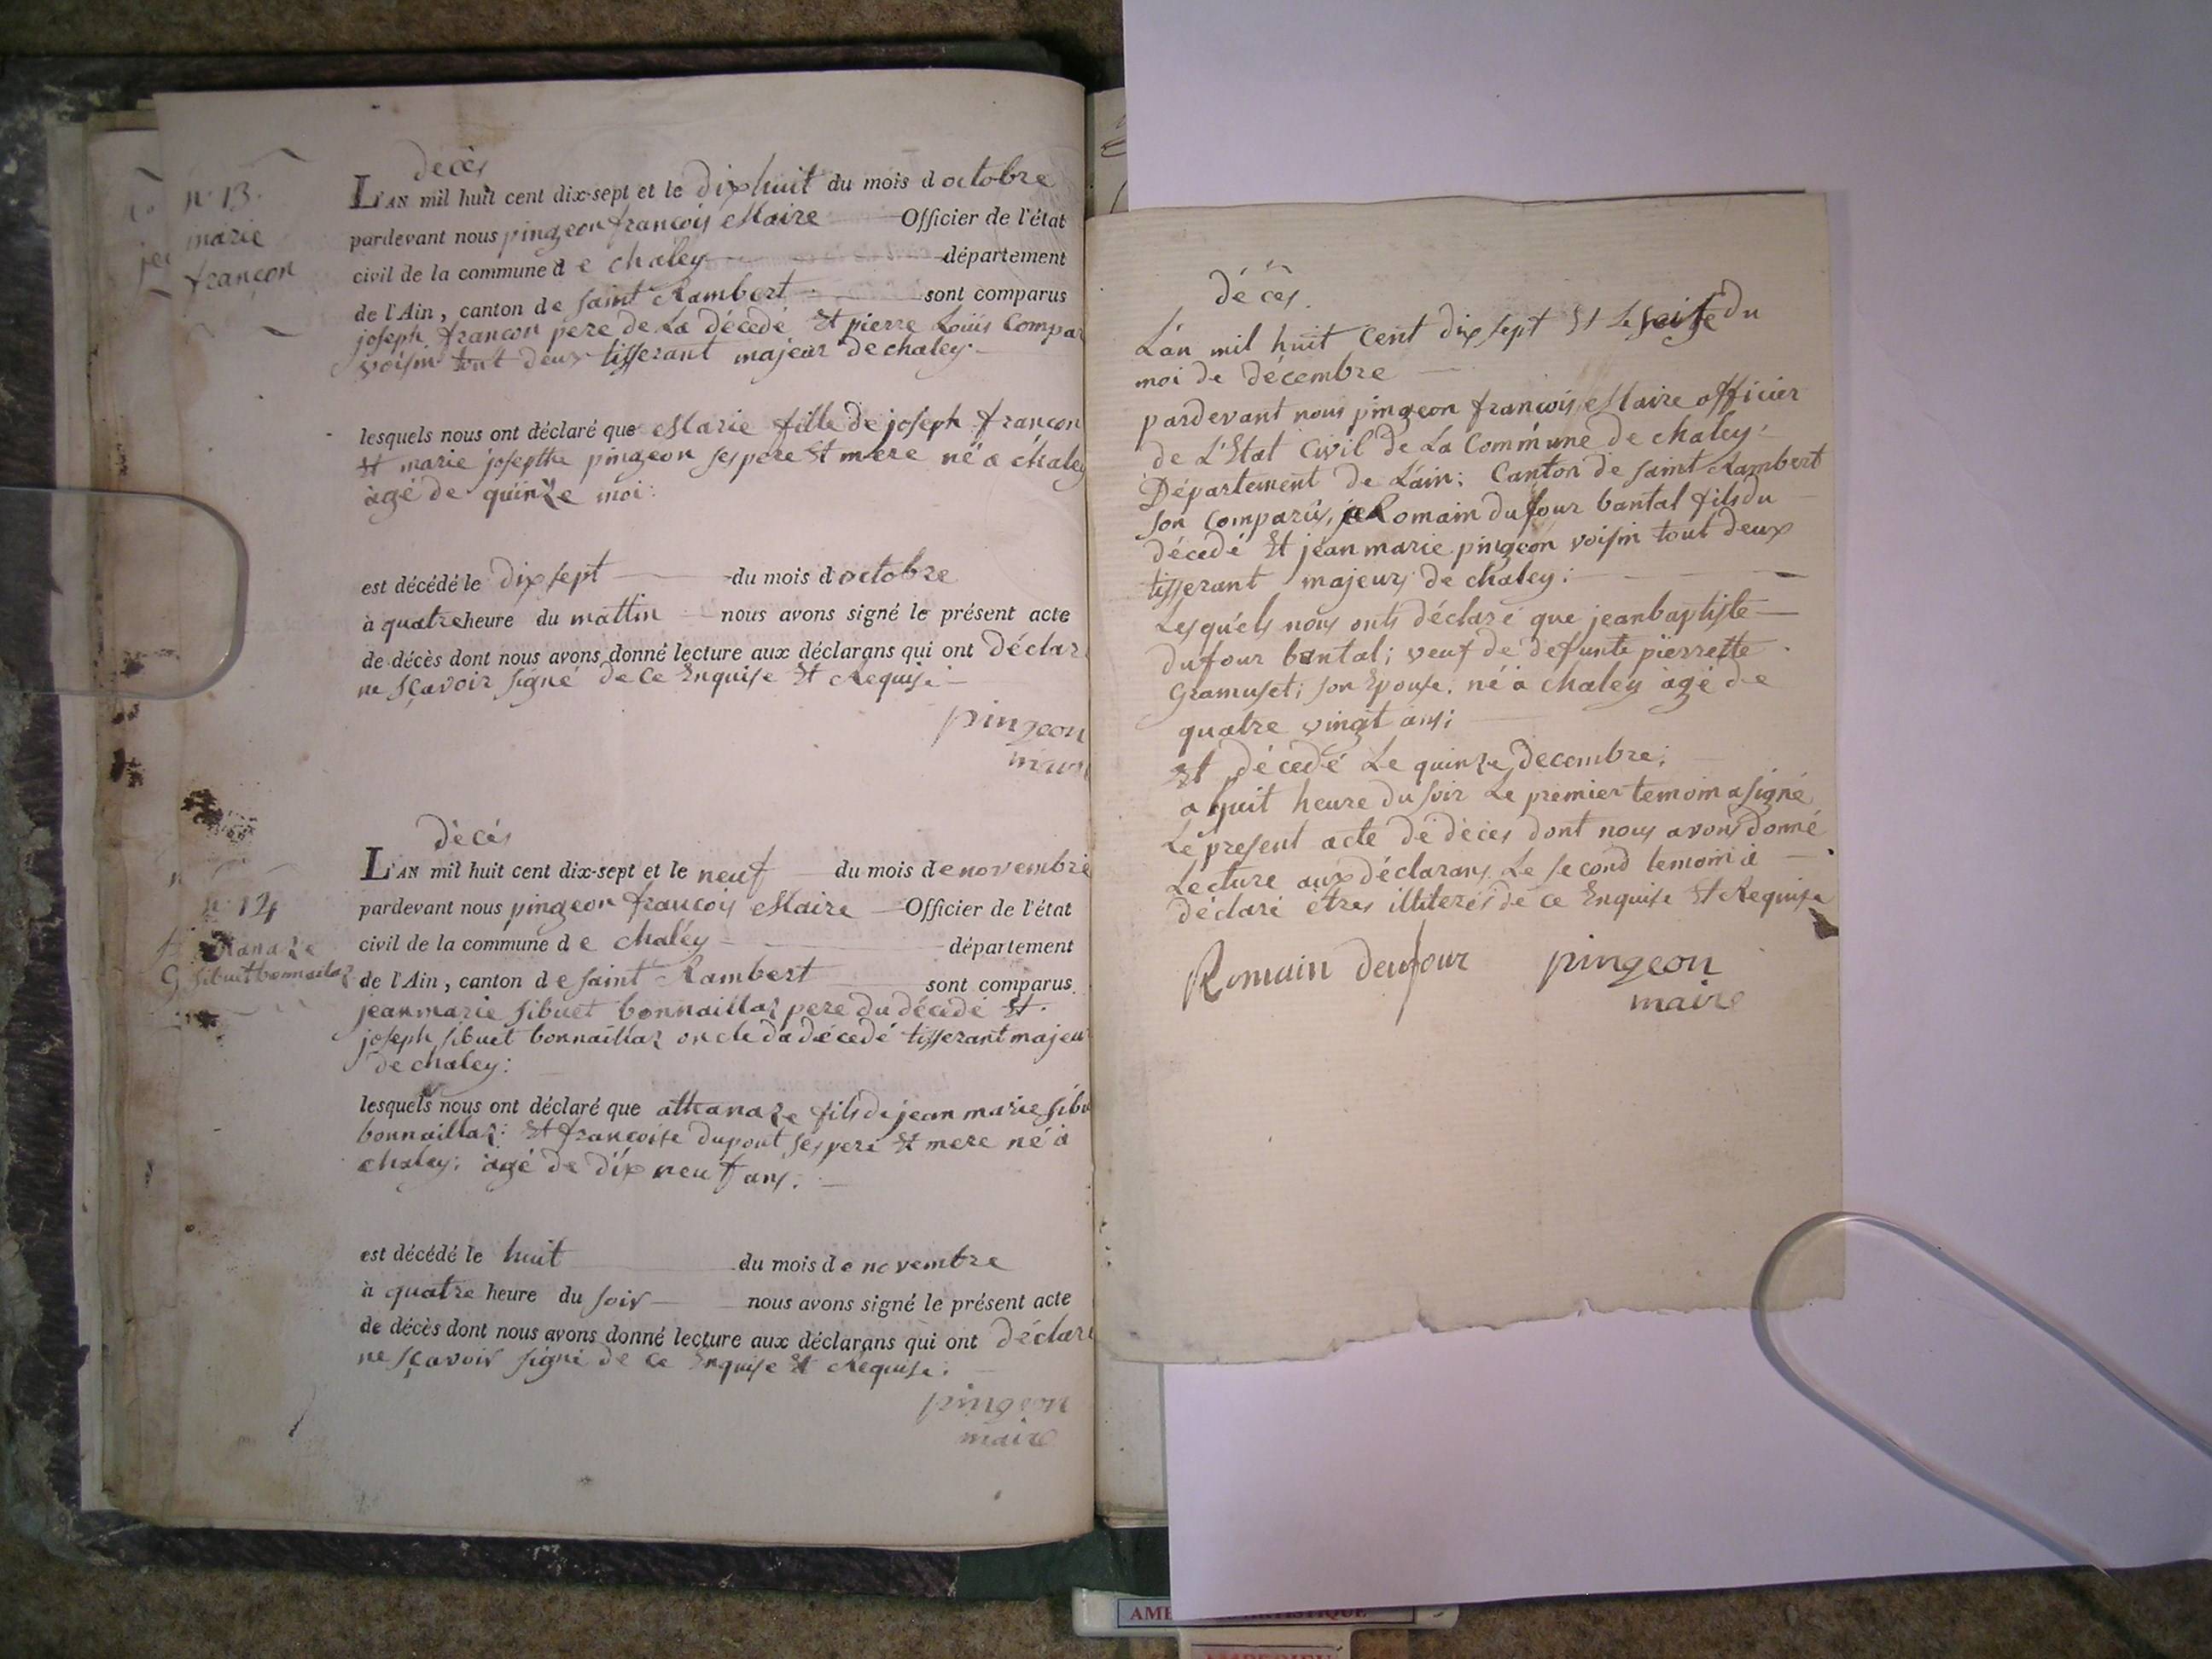 n° 13.
marie
françon
décès
L'AN mil huit cent dix-sept et le dix huit du mois d octobre
pardevant nous pingeon françois Maire Officier de l'état
civil de la commune d e chaley département
de l'Ain, canton de saint Rambert sont comparus
joseph françon pere de La décedé Et pierre Loüis Compar
voisin tout deux tisserant majeur de chaley
lesquels nous ont déclaré que Marie fille de joseph françon
Et marie josepthe pingeon ses pere Et mere né a chaley
agé de quinze moi:
est décédé le dix sept du mois d octobre
à quatre heure du mattin nous avons signé le présent acte
de décès dont nous avons donné lecture aux déclarans qui ont déclar
ne sçavoir signé de ce Enquise Et Requise
pingeon
maire
décès
n° 14
sibuet bonnaillaz
L'AN mil huit cent dix-sept et le neuf du mois de novembre
pardevant nous pingeon françois Maire Officier de l'état
civil de la commune d e chaley département
de l'Ain, canton d e saint Rambert sont comparus
jean marie sibuet bonnaillaz pere du décedé Et
joseph sibuet bonnaillaz oncle da décedé tisserant majeur
de chaley:
lesquels nous ont déclaré que athanaze fils de jean marie sibu
bonnaillaz: Et françoise dupont ses pere Et mere né a
chaley: agé de dix neuf ans.
est décédé le huit du mois de novembre
à quatre heure du soir nous avons signé le présent acte
de décès dont nous avons donné lecture aux déclarans qui ont déclaré
ne sçavoir signé de ce Enquise Et Requise:
pingeon
maire
décès.
L'an mil huit Cent dix sept Et Le seise du
moi de décembre
pardevant nous pingeon françois Maire officier
de L'Etat Civil de La Commune de chaley:
Département de L'ain: Canton de saint Rambert
son Comparüs, Romain dufour bantal fils du
décedé Et jean marie pingeon voisin tout deux
tisserant majeurs de chaley:
Lesquels nous onts déclaré que jean baptiste
dufour bantal; veuf de defunte pierrette
Gramuset; son Epouse. né a chaley agé de
quatre vingt ans;
Est décedé Le quinze decembre;
a huit heure du soir Le premier temoin a signé
Le present acte de décès dont nous avons donné
Lecture aux déclarans Le second temoin a
déclaré etres illiteres de ce Enquise Et Requise
Romain deufour pingeon
maire
AME